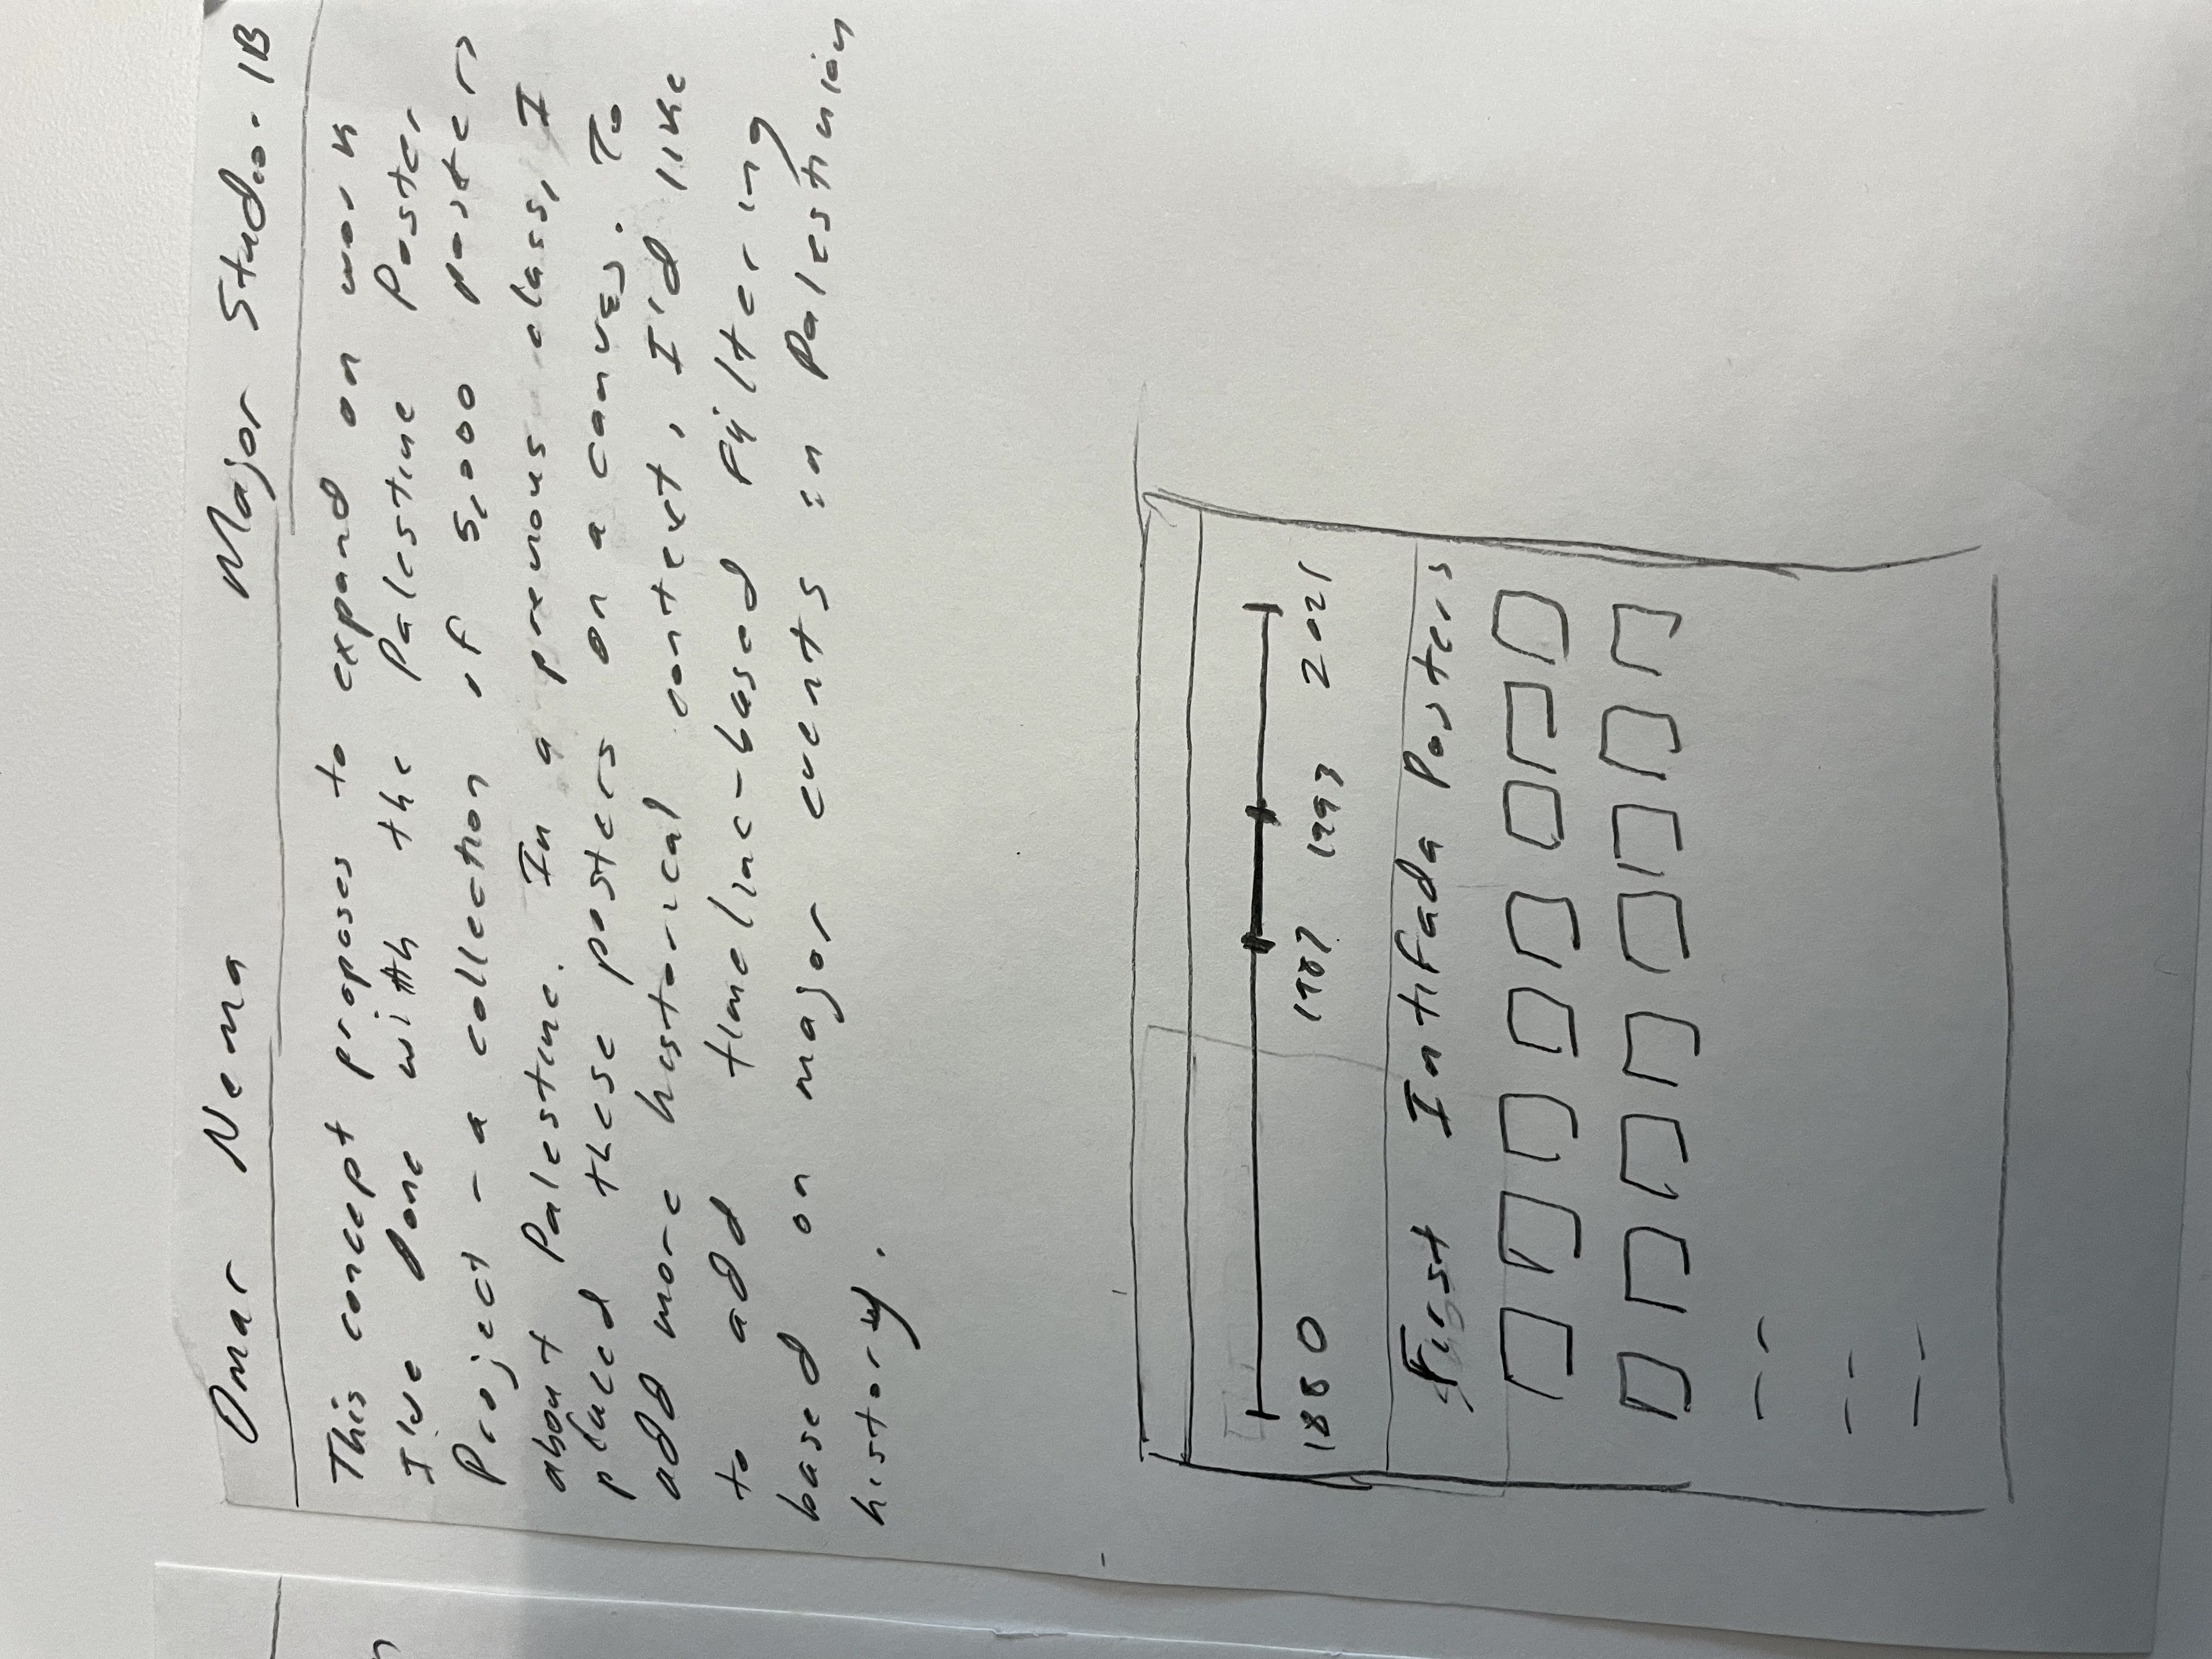 Omar Nema Major Studio. 1B
This concept proposes to expand on work
I've done with the Palestine Poster
Project - a collection of 5,000 posters
about Palestine. In a previous class, I
placed these posters on a canvas. To
add more historical context, I'd like
to add timeline-based filtering
based on major events in Palestinian
history.
1880 1987 1993 2021
First Intifada Posters